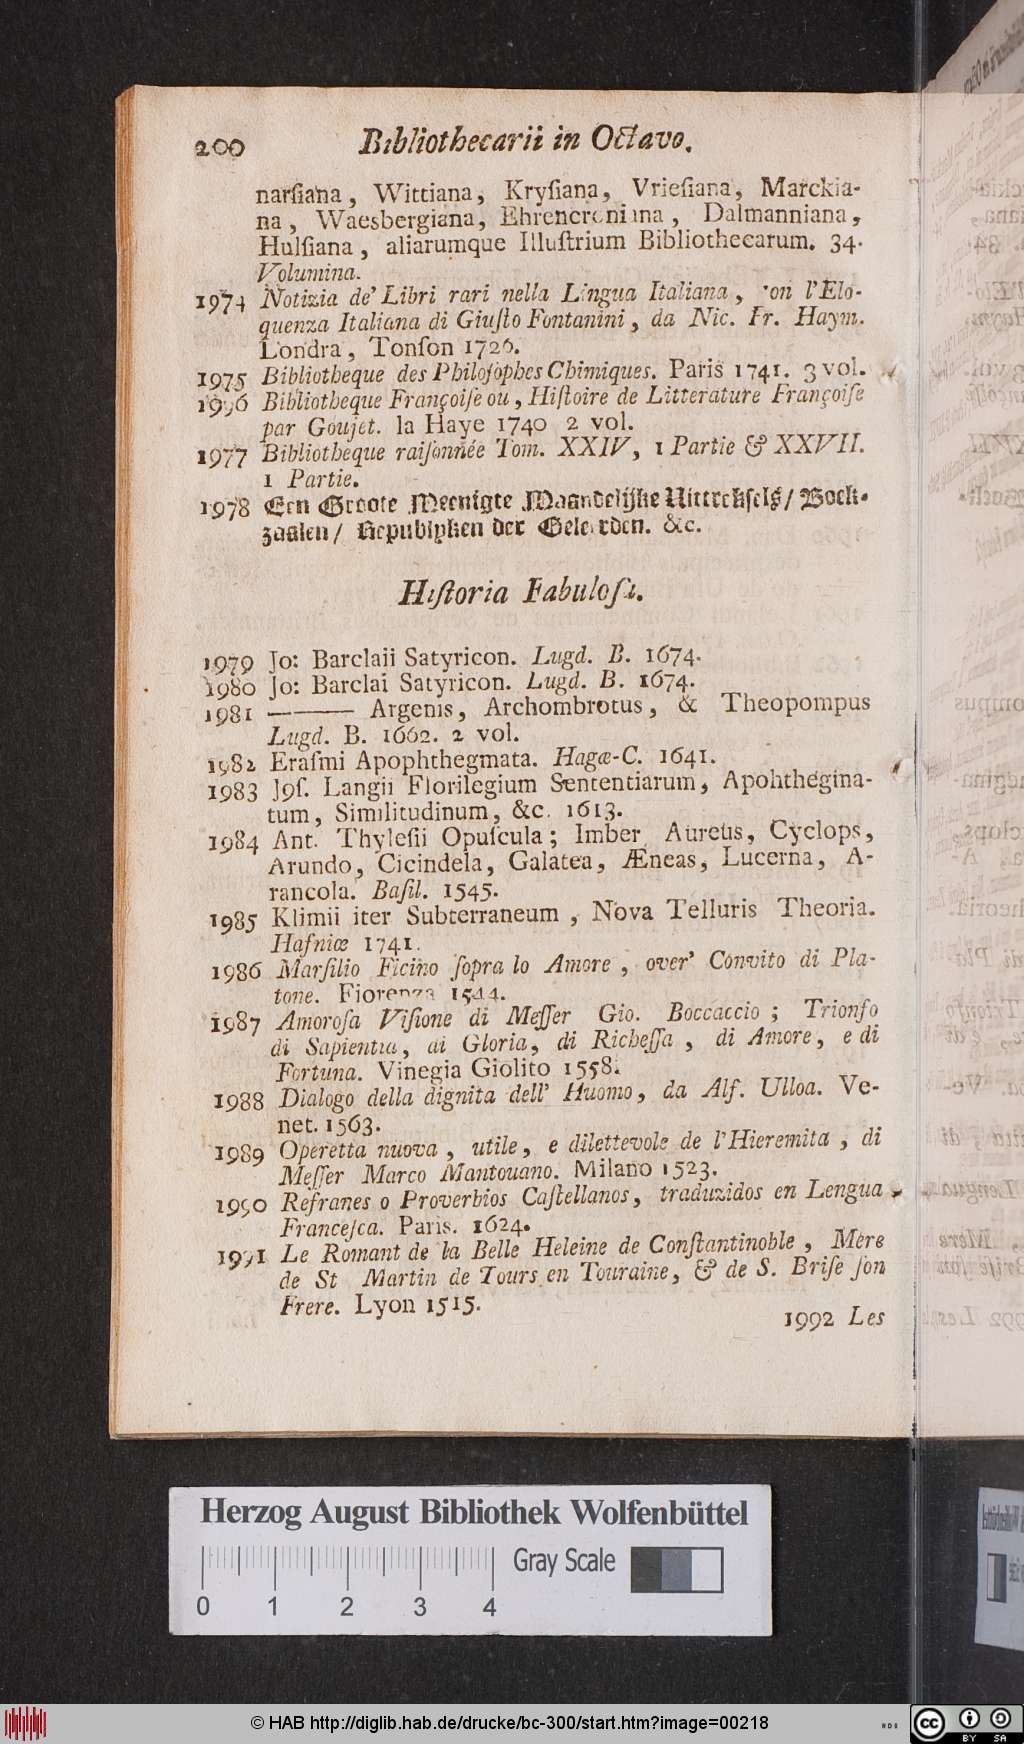 200 Bibliothecarii in Octavo.
narſiana, Wittiana, Kryſiana, Vrieſiana, Marckia-
na, Waesbergiana, Ehrencroniana, Dalmanniana,
Hulſiana, aliarumque Illuſtrium Bibliothecarum. 34.
Volumina.
1974 Notizia de' Libri rari nella Lingua Italiana, con l'Elo-
quenza Italiana di Giuſto Fontanini, da Nic. Fr. Haym.
Londra, Tonſon 1726.
1975 Bibliotheque des Philoſophes Chimiques. Paris 1741. 3 vol.
1976 Bibliotheque Françoiſe ou, Hiſtoire de Litterature Françoiſe
par Goujet. la Haye 1740 2 vol.
1977 Bibliotheque raiſonnée Tom. XXIV, 1 Partie & XXVII.
1 Partie.
1978 Een Groote Meenigte Maandelijke Uittrekſels/ Boek-
zaalen/ Republyken der Geleerden. &c.
Hiſtoria Fabuloſa.
1979 Jo: Barclaii Satyricon. Lugd. B. 1674.
1980 Jo: Barclai Satyricon. Lugd. B. 1674.
1981 ——— Argenis, Archombrotus, & Theopompus
Lugd. B. 1662. 2 vol.
1982 Eraſmi Apophthegmata. Hagæ-C. 1641.
1983 Joſ. Langii Florilegium Sententiarum, Apohthegina-
tum, Similitudinum, &c. 1613.
1984 Ant. Thyleſii Opuſcula; Imber Aureus, Cyclops,
Arundo, Cicindela, Galatea, Æneas, Lucerna, A-
rancola. Baſil. 1545.
1985 Klimii iter Subterraneum, Nova Telluris Theoria.
Hafniæ 1741.
1986 Marſilio Ficino ſopra lo Amore, over' Convito di Pla-
tone. Fiorenza 1544.
1987 Amoroſa Viſione di Meſſer Gio. Boccaccio; Trionfo
di Sapientia, di Gloria, di Richeſſa, di Amore, e di
Fortuna. Vinegia Giolito 1558.
1988 Dialogo della dignita dell' Huomo, da Alf. Ulloa. Ve-
net. 1563.
1989 Operetta nuova, utile, e dilettevole de l'Hieremita, di
Meſſer Marco Mantouano. Milano 1523.
1990 Refranes o Proverbios Caſtellanos, traduzidos en Lengua
Franceſca. Paris. 1624.
1991 Le Romant de la Belle Heleine de Conſtantinoble, Mere
de St Martin de Tours en Touraine, & de S. Briſe ſon
Frere. Lyon 1515.
1992 Les
Herzog August Bibliothek Wolfenbüttel
Gray Scale
0 1 2 3 4
© HAB http://diglib.hab.de/drucke/bc-300/start.htm?image=00218
cc BY SA